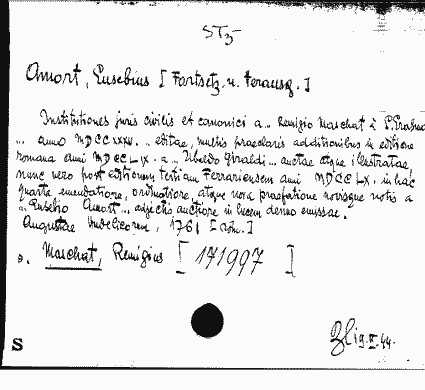 ST3
Amort, Eusebius [Fortsetz. u. Herausg.]
Institutiones juris civilis et canonici a... Remigio Maschat à P. Erasmo
... anno MDCCXXXV... editae, multis praeclaris additionibus in editione
romana anni MDCCLIX. a... Ubaldo Giraldi... auctae atque illustratae,
nunc vero post editionem tertiam Ferrariensem anni MDCCLX. in hac
quarta emendatiore, ordinatiore, atque nova praefatione novisque notis a
.. Eusebio Amort... adjectis auctiore in lucem denuo emissae.
Augustae Vindelicorum, 1761 [röm.]
s. Maschat, Remigius [171997]
S
19.II.44.